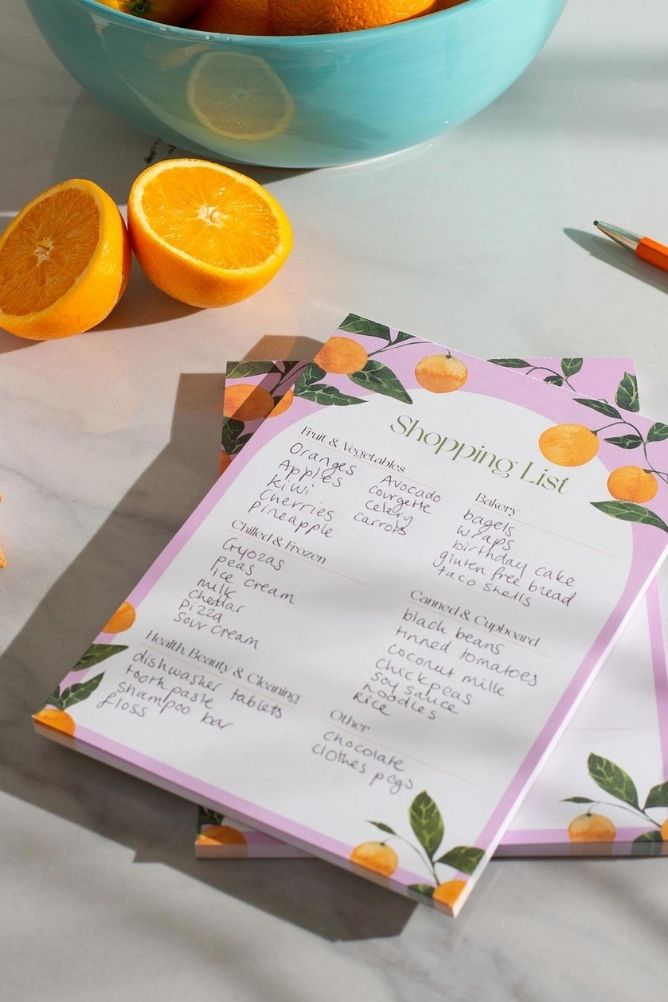 Shopping List
Fruit & Vegetables
Oranges
Apples
Kiwi
Cherries
pineapple
Avocado
courgette
celery
carrots
Bakery
bagels
wraps
birthday cake
gluten free bread
taco shells
Chilled & Frozen
Gyozas
peas
ice cream
milk
cheddar
pizza
sour cream
Canned & Cupboard
black beans
tinned tomatoes
coconut milk
chickpeas
soy sauce
noodles
Rice
Health, Beauty & Cleaning
dishwasher tablets
toothpaste
shampoo bar
floss
Other
chocolate
clothes pegs